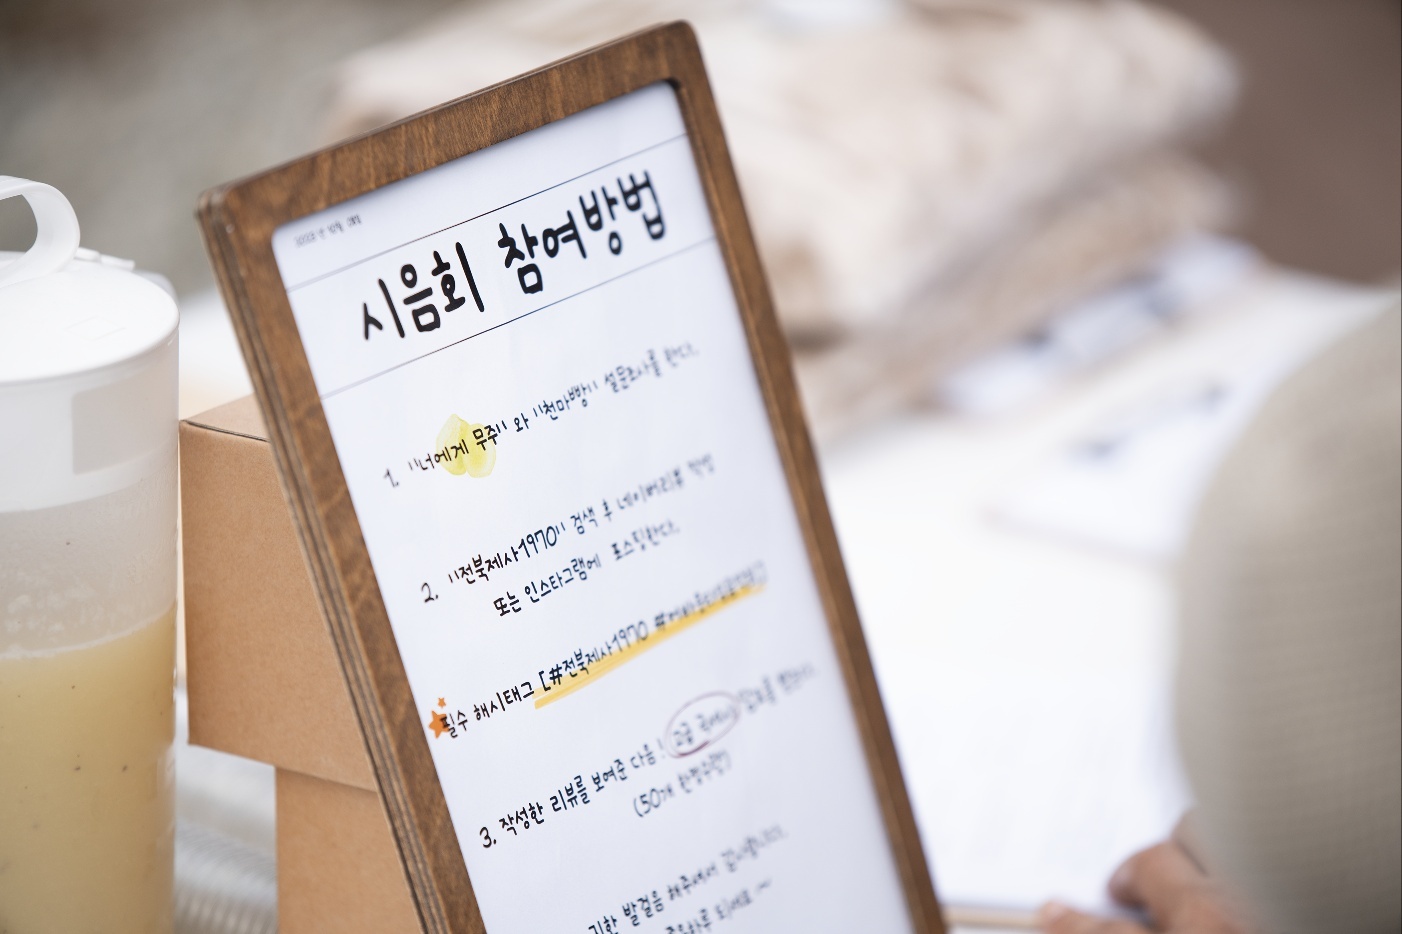 시음회 참여방법
1. "너에게 무주" 와 "천마빵" 설문조사를 한다.
2. "전북제사1970" 검색 후 네이버리뷰 작성
또는 인스타그램에 포스팅한다.
필수 해시태그 [#전북제사1970
3. 작성한 리뷰를 보여준 다음!
(50개 한정수량)
귀한 발걸음 해주셔서 감사합니다.